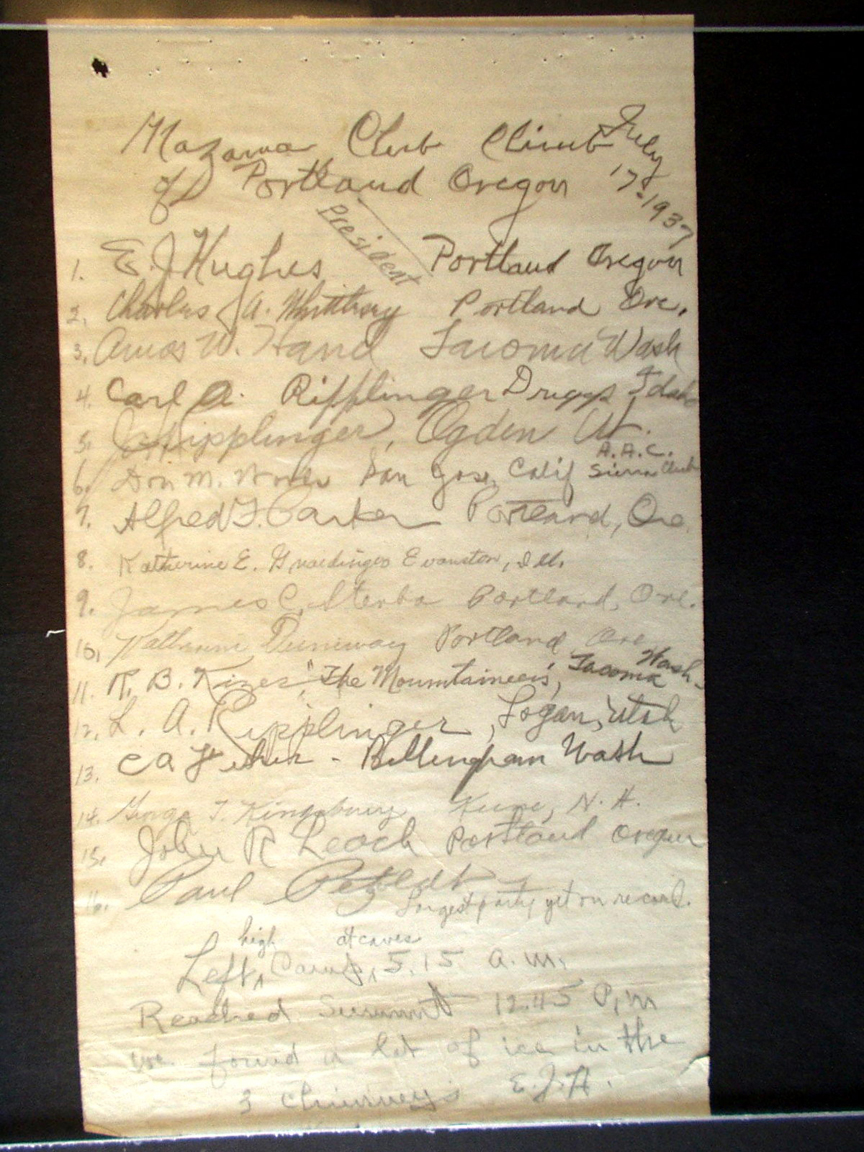 Mazama Club Climb July
of Portland Oregon 17-1937
President
1. E. J. Hughes Portland Oregon
2. Charles A. Portland Ore.
3. Amos W. Hand Tacoma Wash
4. Carl A. Ripplinger Driggs Idaho
5. J. Ripplinger, Ogden Ut.
A.A.C.
6. Don M. Woods San Jose, Calif Sierra Club
7. Alfred F. Parker Portland, Ore.
8. Katherine E. Evanston, Ill.
9. James C. Sterba Portland, Ore.
10. Katharine Duniway Portland Ore
11. R. B. Kizer, "The Mountaineers", Tacoma Wash.
12. L. A. Ripplinger, Logan, Utah
13. C A Fisher - Bellingham Wash
14. George T. Kingsbury Keene, N. H.
15. John R Leach Portland Oregon
16. Paul Petzoldt
Largest party yet on record.
high at caves
Left, Camp, 5.15 a.m.
Reached Summit 12.45 P.m
we found a lot of ice in the
3 chimney's E.J.H.